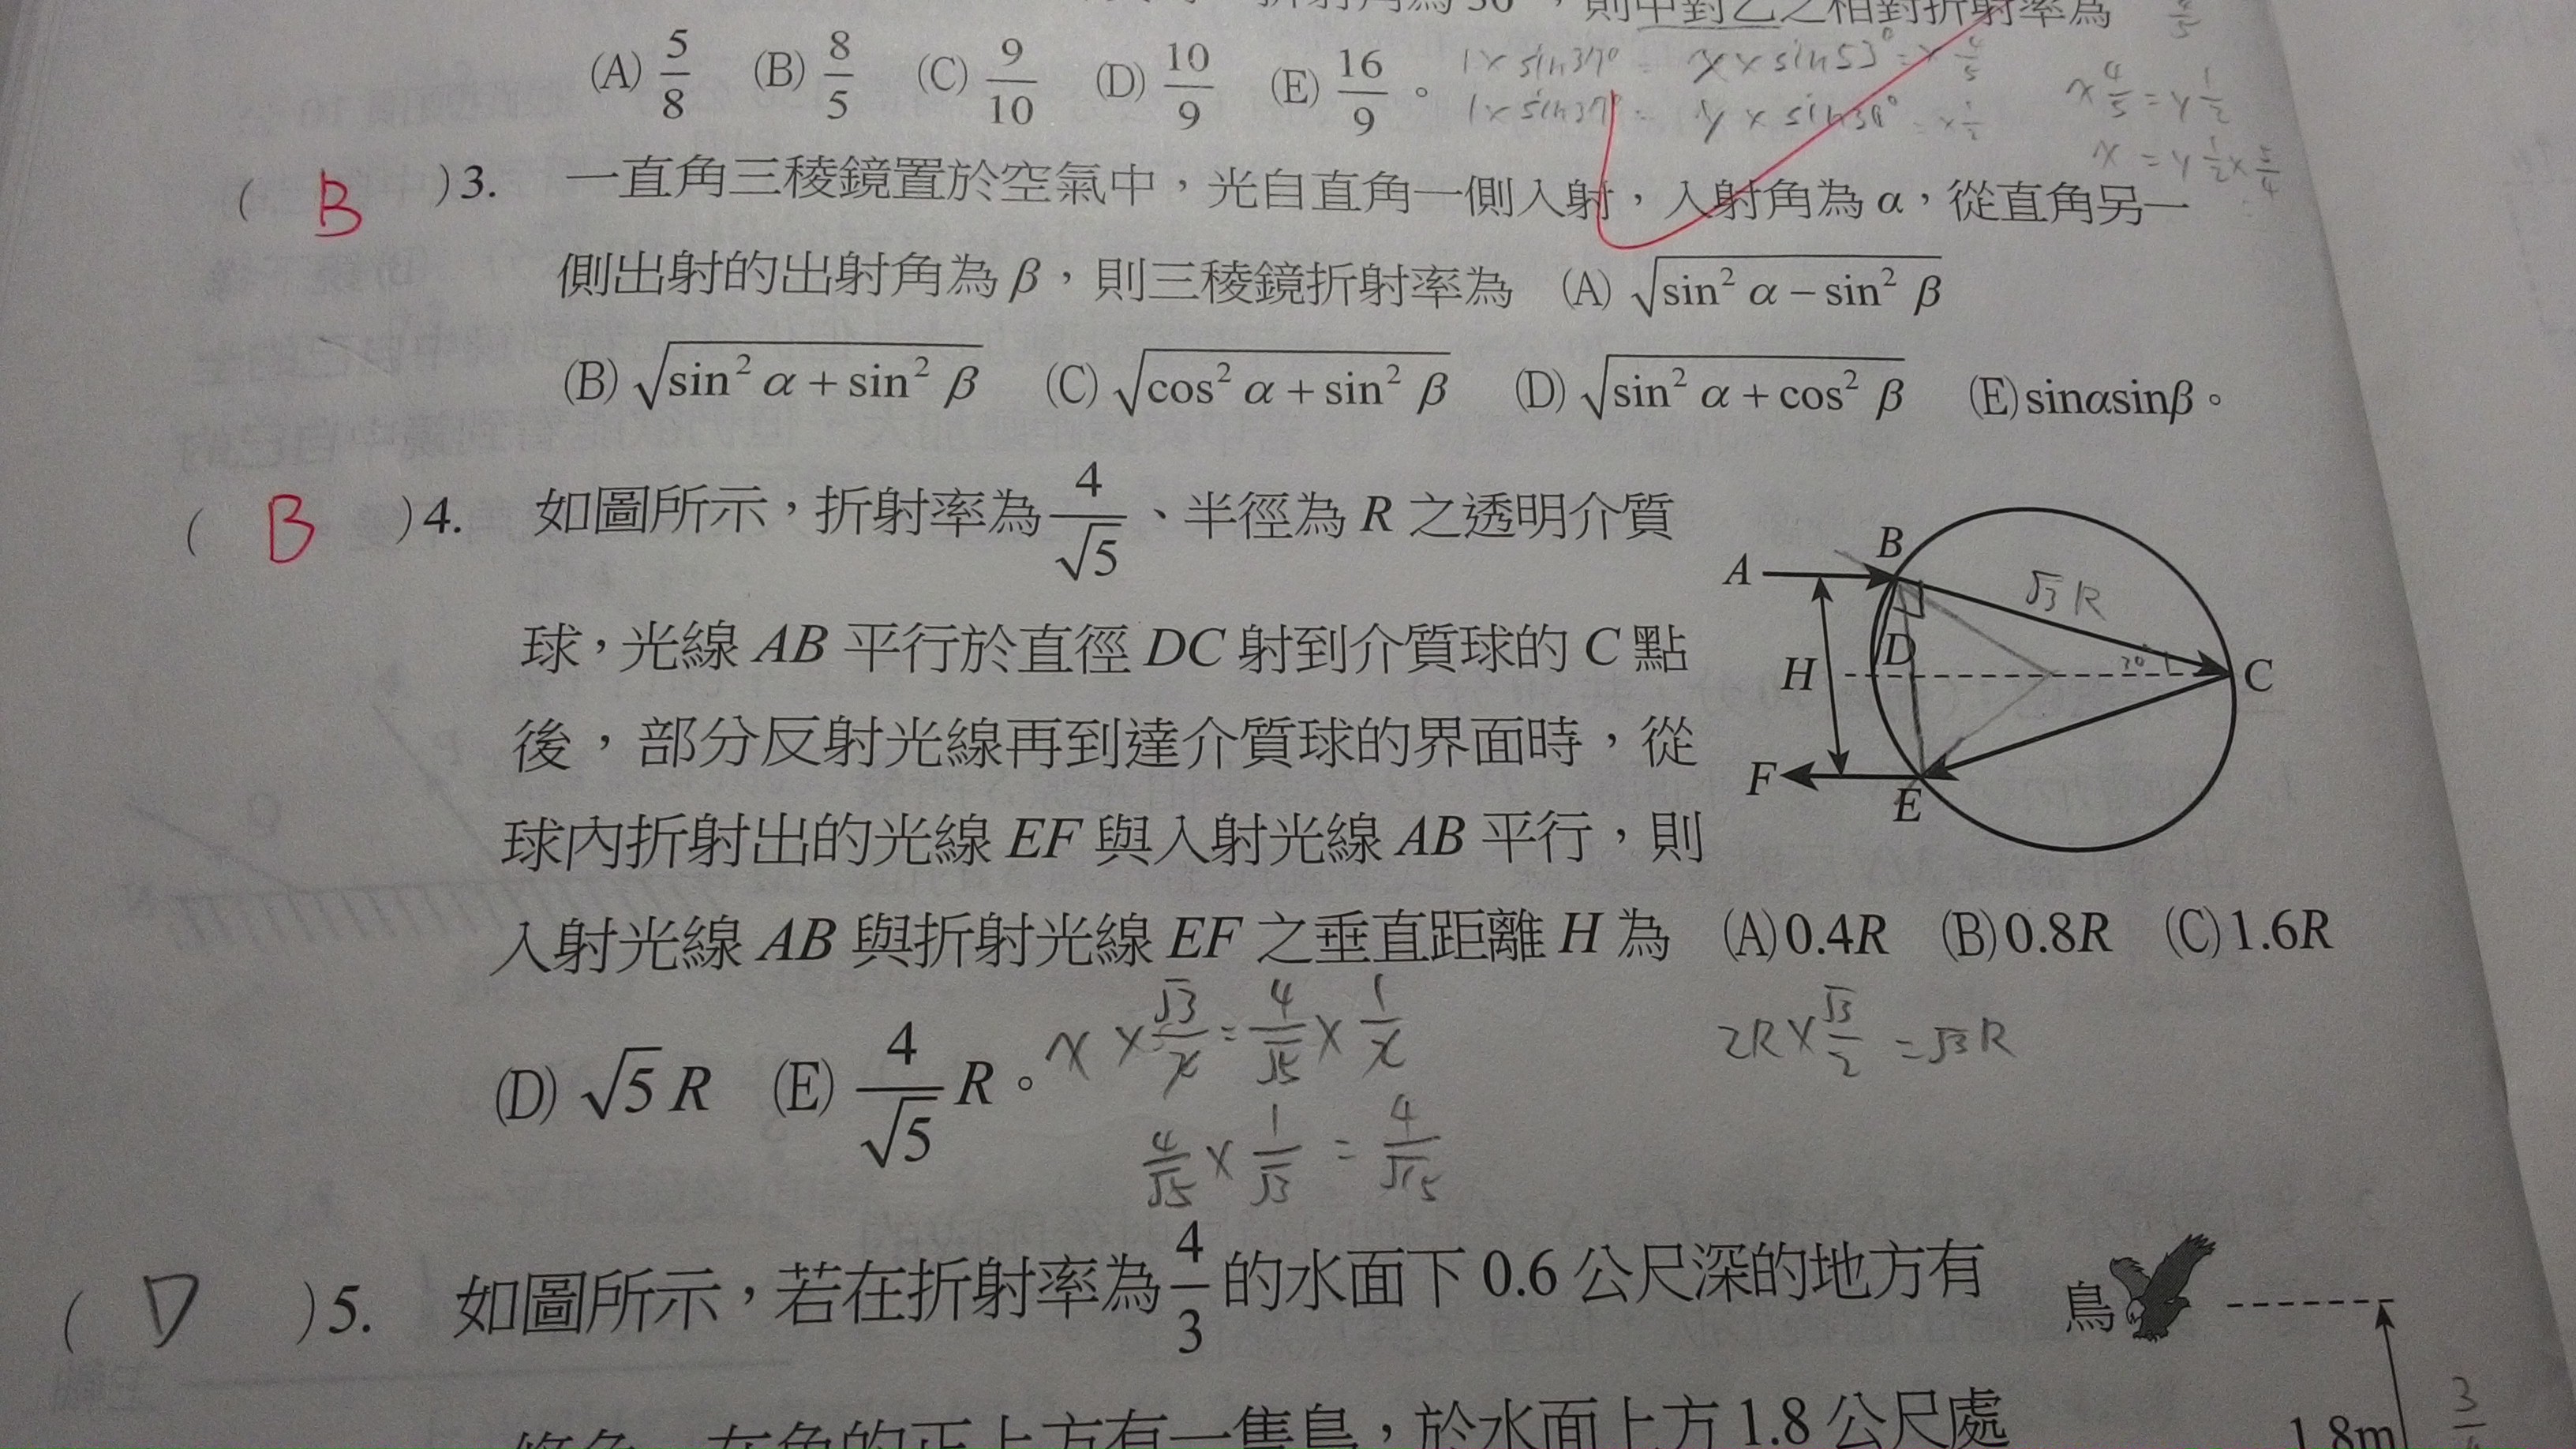 折射角為30°，則甲對乙之相對折射率為
(A) 5/8 (B) 8/5 (C) 9/10 (D) 10/9 (E) 16/9 。
1×sin37° = x×sin53° = x 4/5
1×sin37° = y×sin30° = y 1/2
x 4/5 = y 1/2
( B )3. 一直角三稜鏡置於空氣中，光自直角一側入射，入射角為 α，從直角另一
側出射的出射角為 β，則三稜鏡折射率為 (A) √(sin² α − sin² β)
(B) √(sin² α + sin² β) (C) √(cos² α + sin² β) (D) √(sin² α + cos² β) (E) sinαsinβ。
( B )4. 如圖所示，折射率為 4/√5 、半徑為 R 之透明介質
球，光線 AB 平行於直徑 DC 射到介質球的 C 點
後，部分反射光線再到達介質球的界面時，從
球內折射出的光線 EF 與入射光線 AB 平行，則
入射光線 AB 與折射光線 EF 之垂直距離 H 為 (A) 0.4R (B) 0.8R (C) 1.6R
(D) √5 R (E) 4/√5 R。
A
B
√3 R
D
H
30°
C
F
E
x × √3/x = 4/√5 × 1/x
4/√5 × 1/√3 = 4/√15
2R × √3/2 = √3 R
( D )5. 如圖所示，若在折射率為 4/3 的水面下 0.6 公尺深的地方有
鳥
在魚的正上方有一隻鳥，於水面上方 1.8 公尺處
1.8m